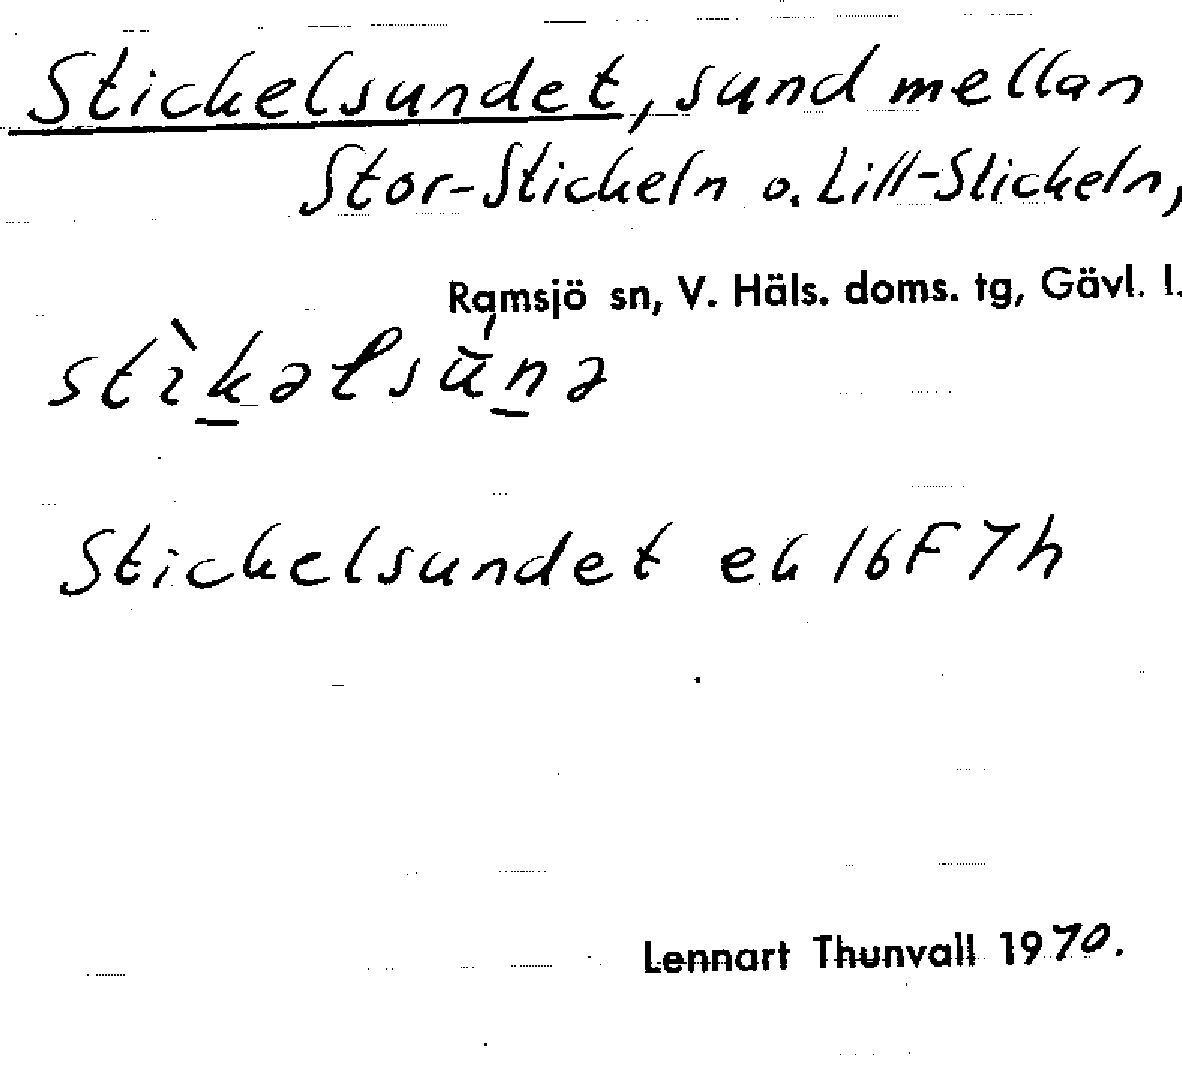 Stickelsundet, sund mellan
Stor-Stickeln o. Lill-Stickeln,
Ramsjö sn, V. Häls. doms. tg, Gävl. l.
Stickelsundet ek 16F7h
Lennart Thunvall 1970.